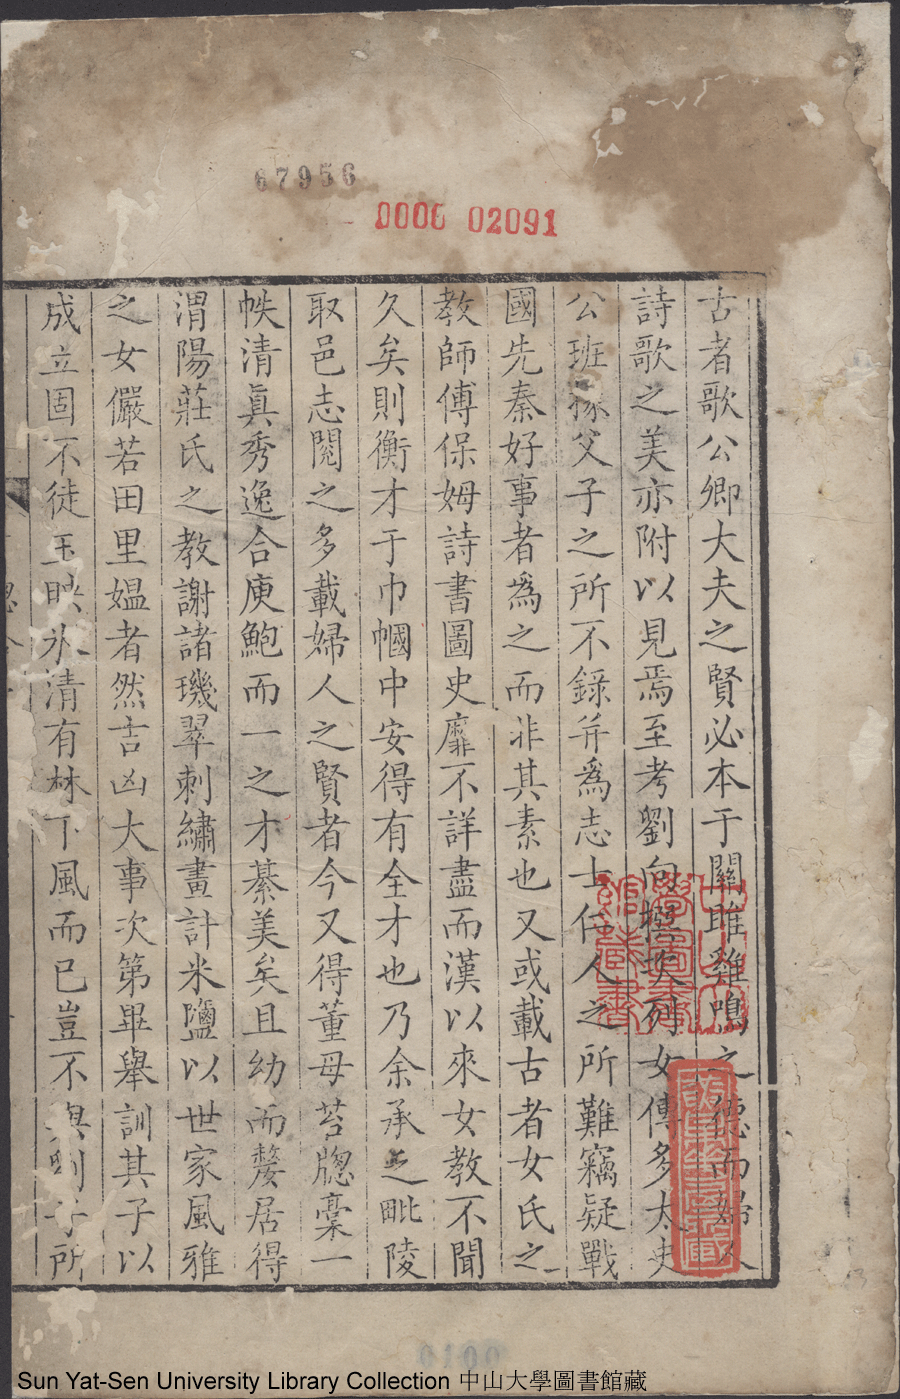 67956
0000 02091
古者歌公卿大夫之賢必本于關雎雞鳴之德而婦人
詩歌之美亦附以見焉至考劉向撰次列女傳多太史
公班掾父子之所不錄并爲志士仁人之所難竊疑戰
國先秦好事者爲之而非其素也又或載古者女氏之
教師傅保姆詩書圖史靡不詳盡而漢以來女教不聞
久矣則衡才于巾幗中安得有全才也乃余承乏毗陵
取邑志閱之多載婦人之賢者今又得董母苕牕稾一
帙清眞秀逸合庾鮑而一之才綦美矣且幼而嫠居得
渭陽莊氏之教謝諸璣翠刺繡畫計米鹽以世家風雅
之女儼若田里媼者然吉凶大事次第畢舉訓其子以
成立固不徒玉映氷清有林下風而已豈不與剛子所
中山大學圖書館藏書
0100
Sun Yat-Sen University Library Collection 中山大學圖書館藏